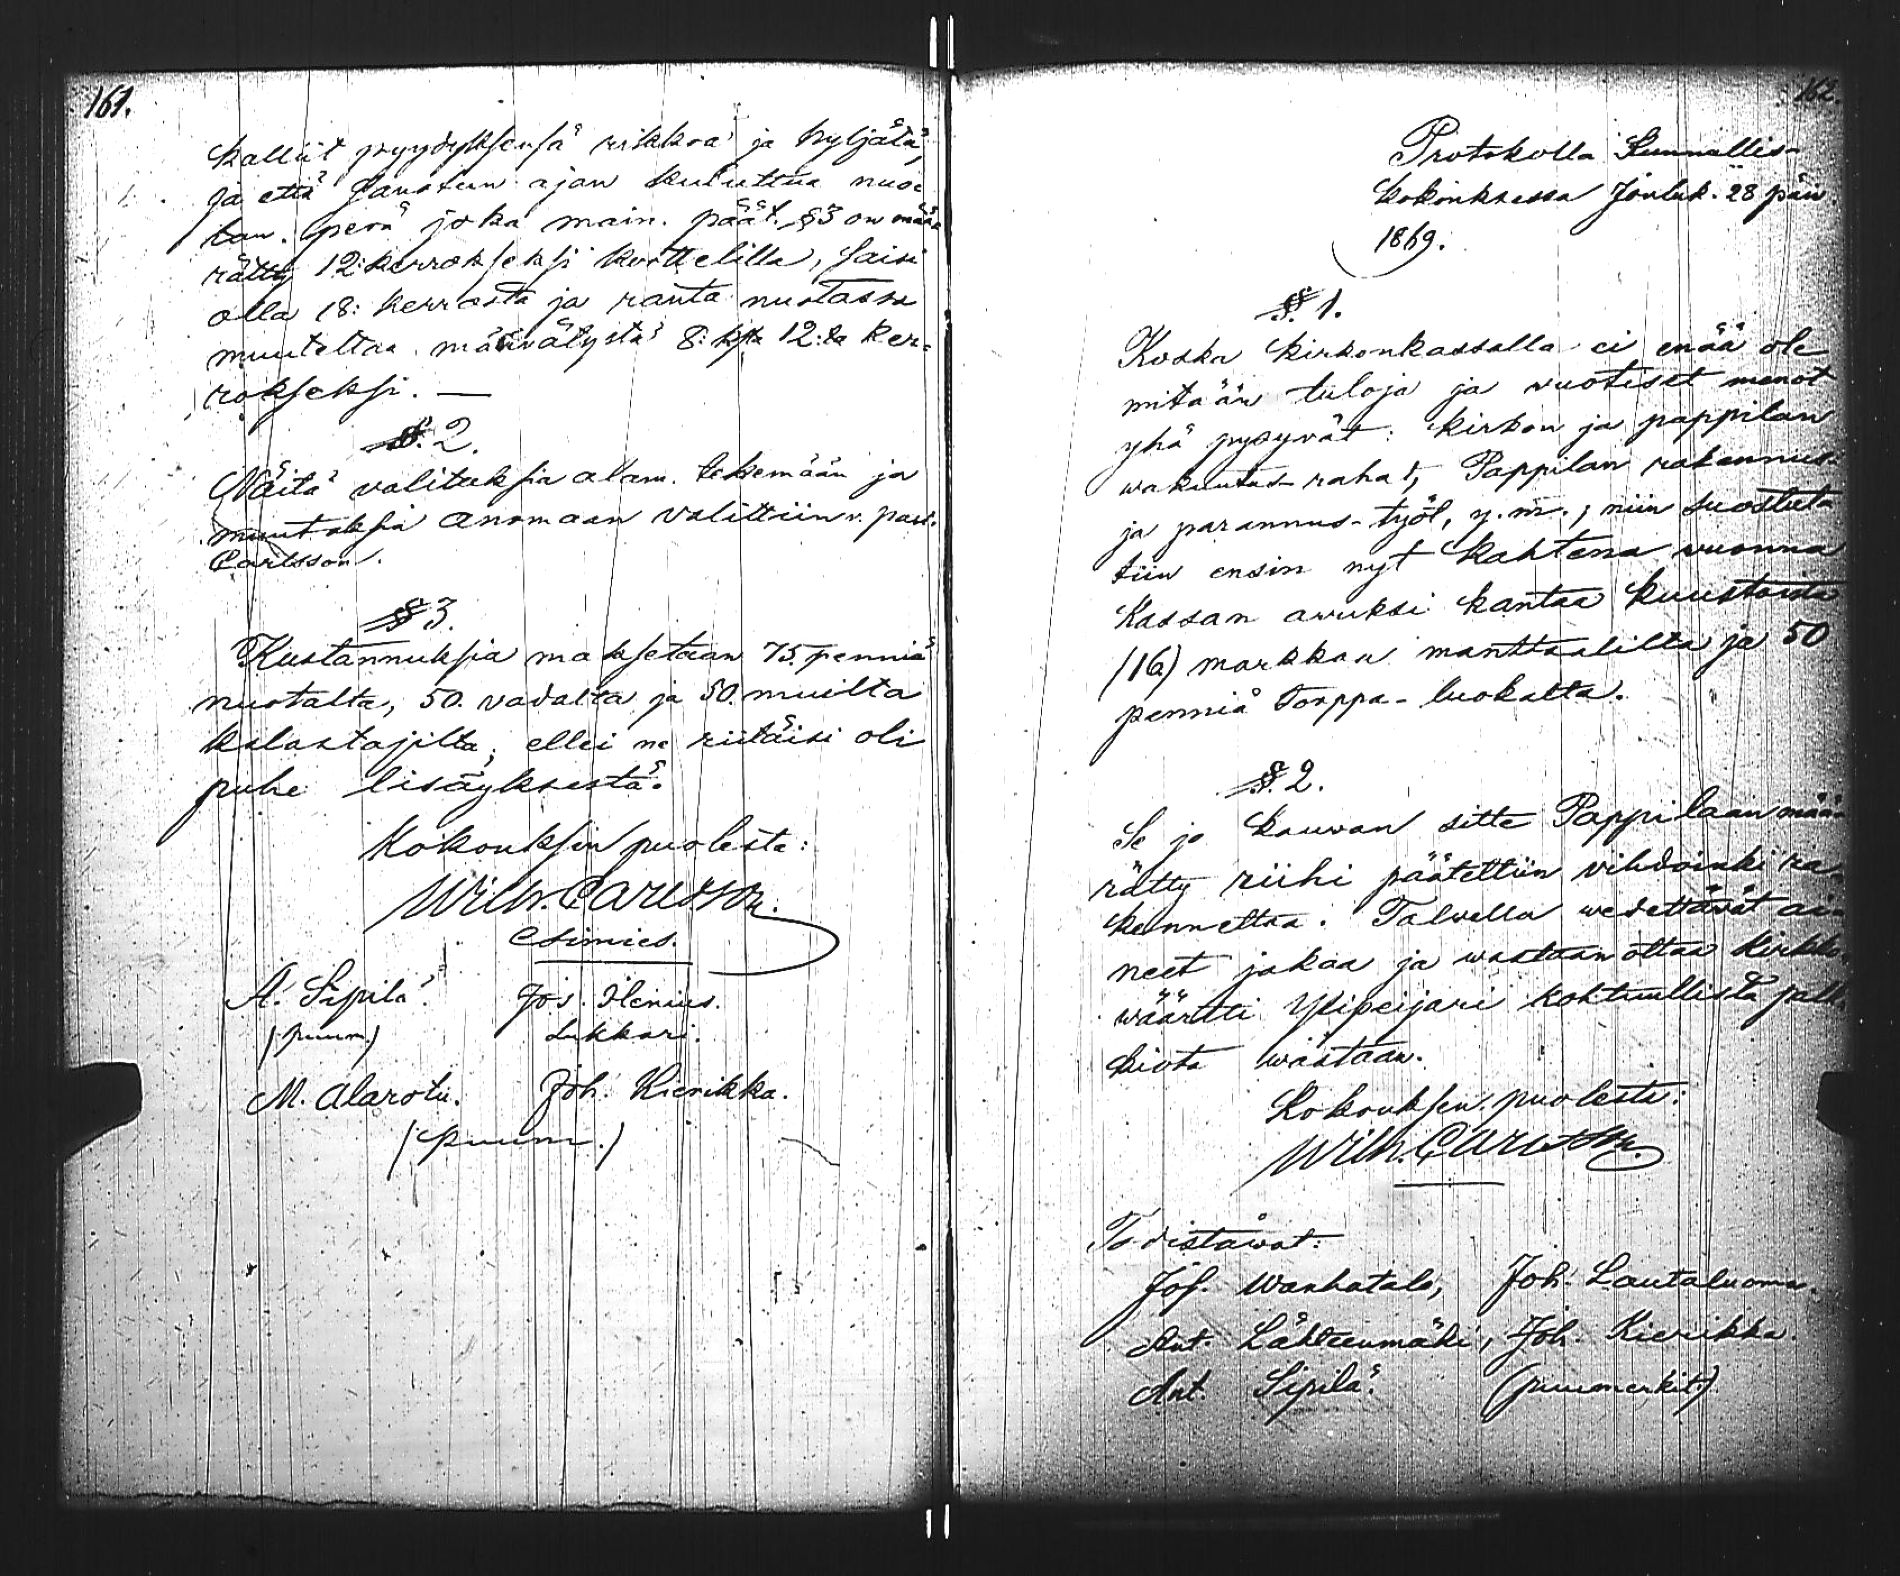 161.
kalliit pyydyksensä rikkoa ja hyljätä,
ja että saastun ajan kuluttua nuo-
tan perä joka main. päät. §3 on mää-
rätty 12:kerrokseksi kvorttelilla, saisi
olla 18: kerrosta ja ranta nuotassa
muutettaa määrätystä 8: ksta 12:ta ker-
rokseksi. —
§. 2.
Näitä valituksia alam. tekemään ja
muutoksia anomaan valittiin v. past.
Carlsson.
§ 3.
Kustannuksia maksetaan 75 penniä
nuotalta, 50. vadalta ja 50. muilta
kalastajilta; ellei ne riitäisi oli
puhe lisäyksestä.
Kokouksen puolesta:
Wilh. Carlsson.
Esimies.
A. Sipilä. Jos. Ilenius.
(puum.) Lukkari.
M. Alarotu. Joh. Kierikka.
(puum.)
162.
Protokolla Kunnallis-
kokouksessa Jouluk. 28 päiv
1869.
§. 1.
Koska kirkonkassalla ei enää ole
mitään tuloja ja vuotiset menot
yhä pysyvät: kirkon ja pappilan
wakuutus-rahat, Pappilan rakennus-
ja parannus-työt, y. m.; niin suostut-
tiin ensin nyt kahtena vuonna
kassan avuksi kantaa kuustoista
(16) markkaa manttaalilta ja 50
penniä torppa-luokalta.
§. 2.
Se jo kauvan sitte Pappilaan mää-
rätty riihi päätettiin vihdoinki ra-
kennettaa. Talvella wedettävät ai-
neet jakaa ja wastaanottaa kirkko-
wäärtti Ypipeijari kohtuullista palk-
kiota wastaan.
Kokouksen puolesta:
Wilh. Carlsson.
Todistavat:
Jos. Wanhatalo, Joh. Lautaluoma.
Ant. Lähteenmäki, Joh. Kierikka.
Ant. Sipilä. (puumerkit.)